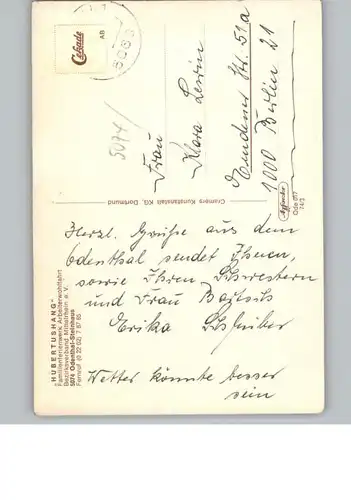 Cekade
AB
5068
5074/
Frau
Klara Lewin
Emdener Str. 51a
1000 Berlin 21
Cramers Kunstanstalt KG, Dortmund
Ode 017
74/3
Herzl. Grüße aus dem
Odenthal sendet Ihnen,
sowie Ihren Schwestern
und Frau
Erika Schreiber
Wetter könnte besser
sein
"HUBERTUSHANG"
Familienferienwerk Arbeiterwohlfahrt
Bezirksverband Mittelrhein e. V.
5074 Odenthal-Steinhaus
Fernruf (0 22 02) 7 87 85